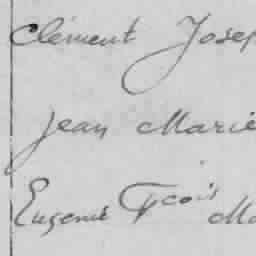 Clément Josep
Jean Marie
Eugene Fçois Ma